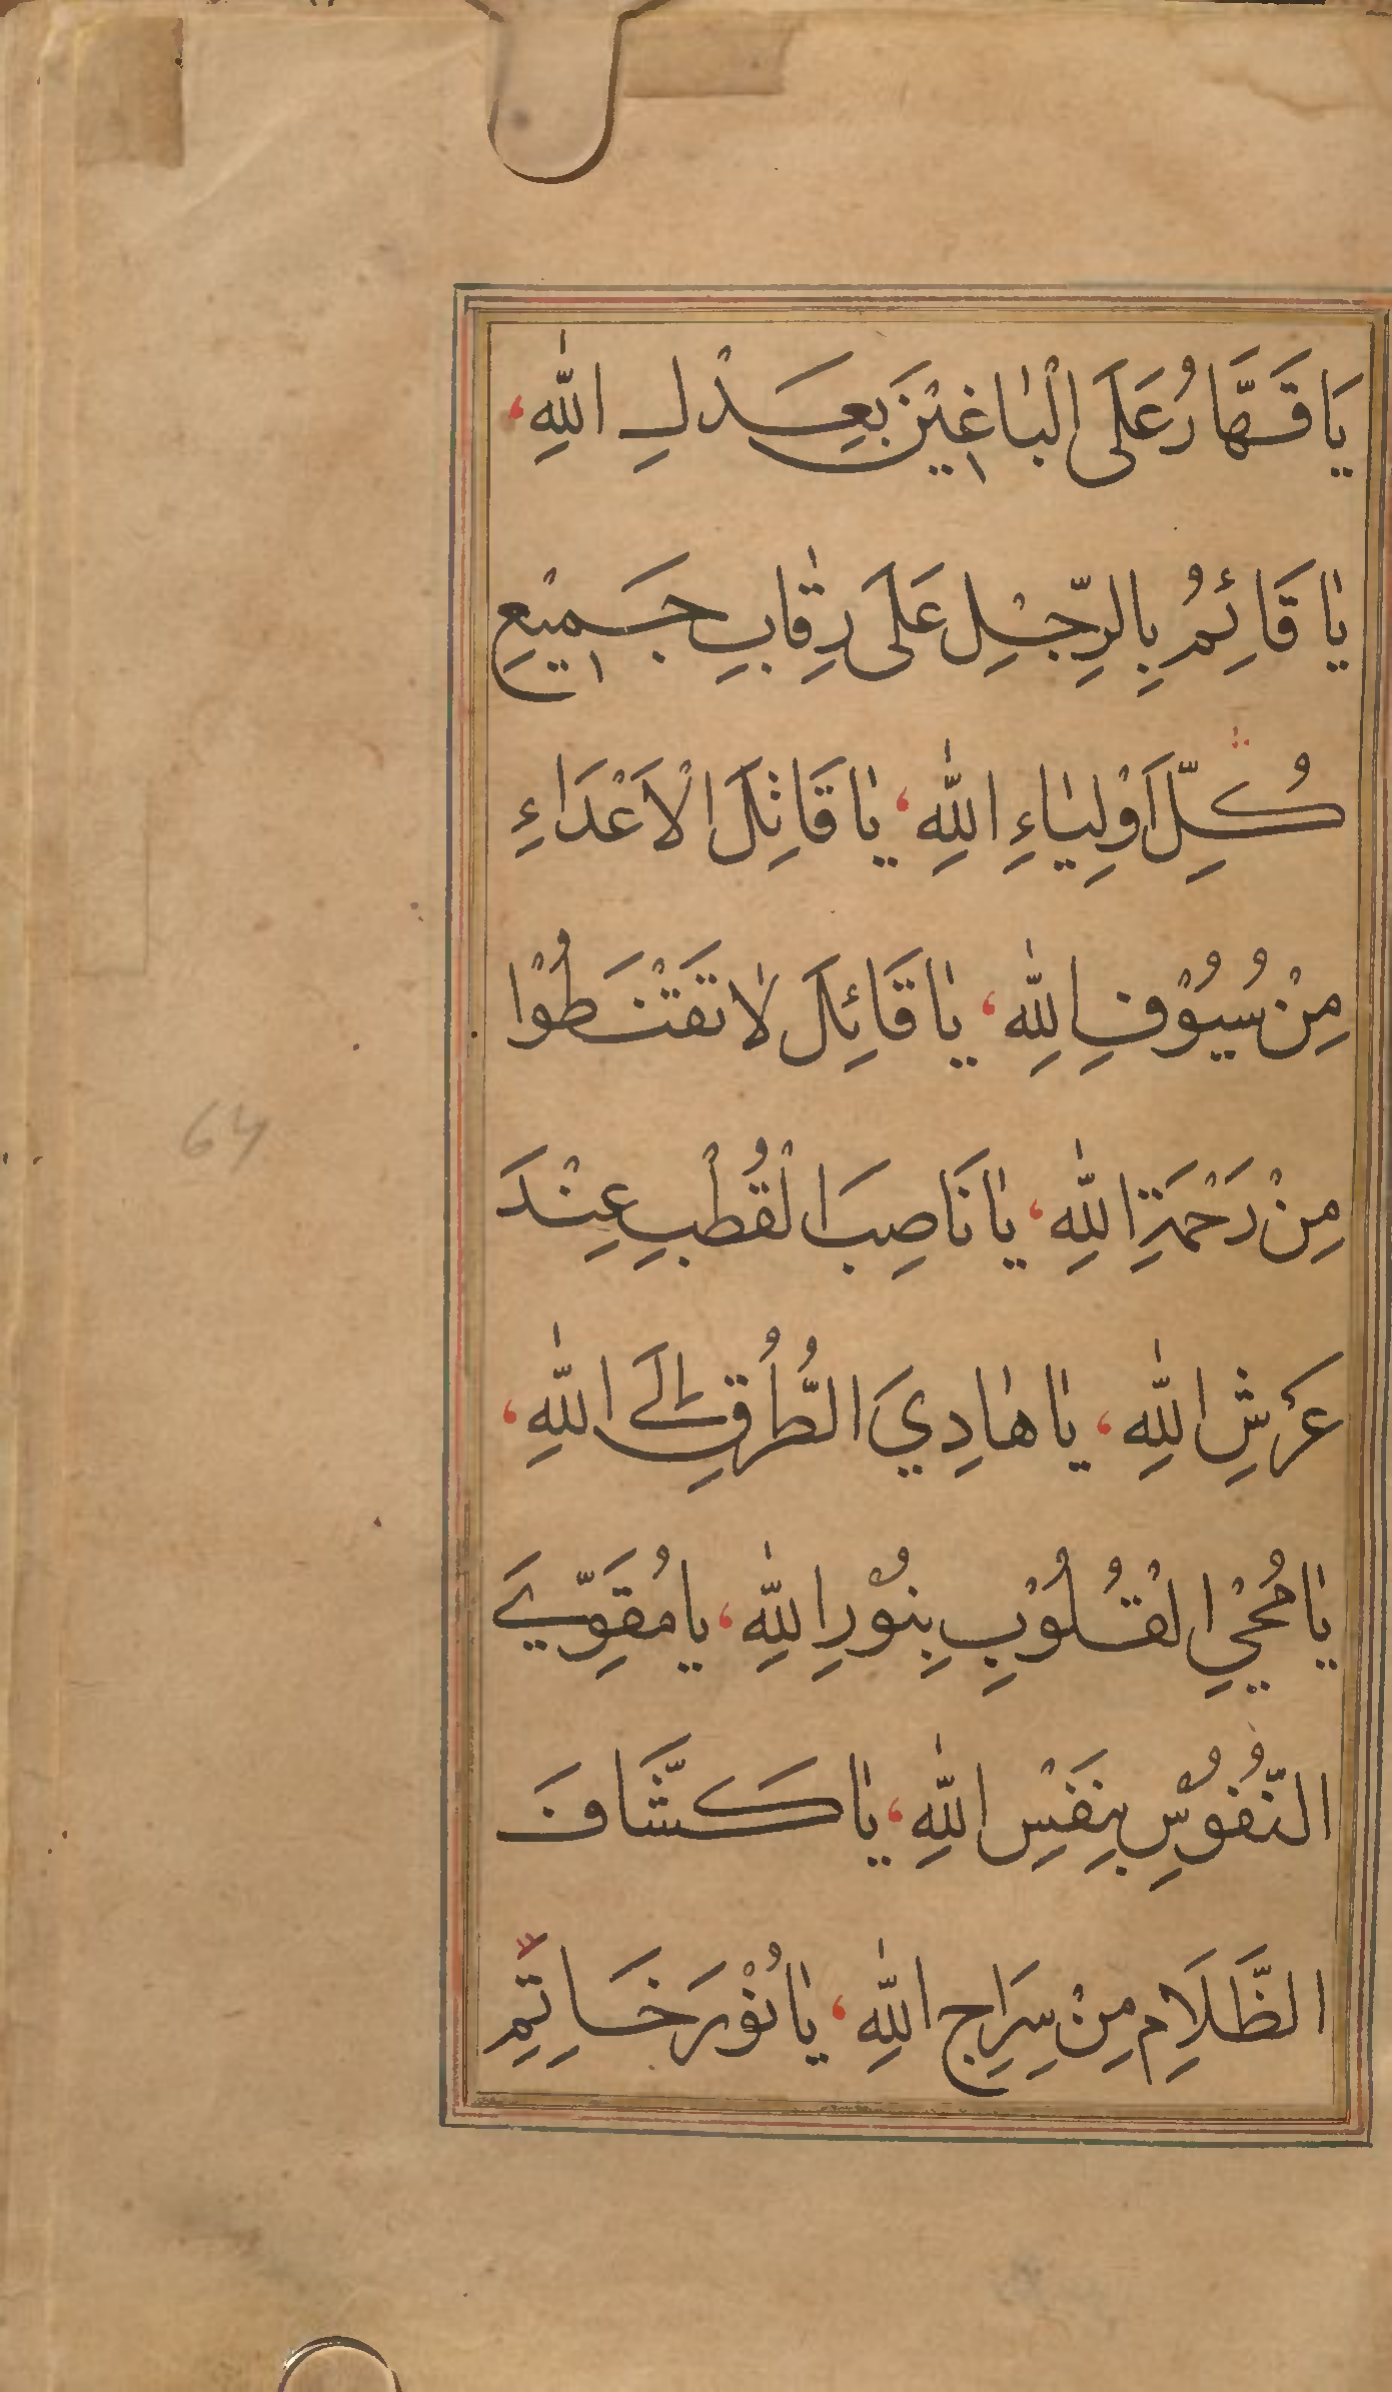 يَا قَهَّارُ عَلَى الْبَاغِيْنَ بِعَدْلِ اللّٰهِ،
يَا قَائِمُ بِالرِّجْلِ عَلَى رِقَابِ جَمِيْعِ
كُلِّ اَوْلِيَاءِ اللّٰهِ، يَا قَاتِلَ الْاَعْدَاءِ
مِنْ سُيُوْفِ اللّٰهِ، يَا قَائِلَ لَا تَقْنَطُوْا
مِنْ رَحْمَةِ اللّٰهِ، يَا نَاصِبَ الْقُطْبِ عِنْدَ
عَرْشِ اللّٰهِ، يَا هَادِيَ الطُّرُقِ اِلَى اللّٰهِ،
يَا مُحْيِ الْقُلُوْبِ بِنُوْرِ اللّٰهِ، يَا مُقَوِّيَ
النُّفُوْسِ بِنَفَسِ اللّٰهِ، يَا كَشَّافَ
الظَّلَامِ مِنْ سِرَاجِ اللّٰهِ، يَا نُوْرَ خَاتِمِ
64